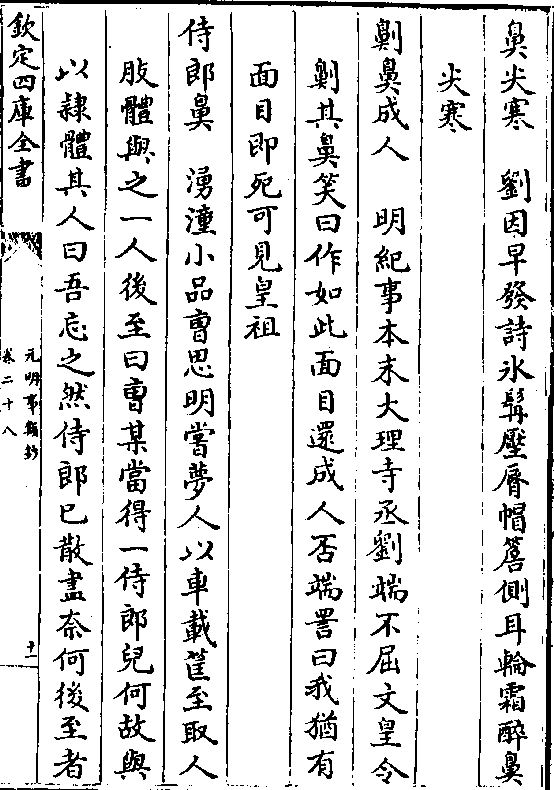 鼻尖寒　劉因早發詩氷髯壓脣帽簷側耳輪霜醉鼻
尖寒
劓鼻成人　明紀事本末大理寺丞劉端不屈文皇令
劓其鼻笑曰作如此面目還成人否端詈曰我猶有
面目即死可見皇祖
侍郎鼻　湧潼小品曺思明嘗夢人以車載筐至取人
肢體與之一人後至曰曺某當得一侍郎兒何故與
以隷體其人曰吾忘之然侍郎已散盡奈何後至者
欽定四庫全書
元明事類鈔
卷二十八
十一